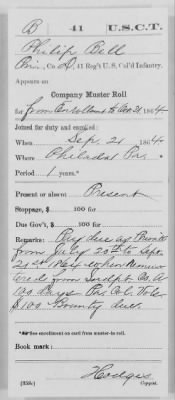 B 41 U.S.C.T.
Philip Bell
Priv., Co. D, 41 Reg't U. S. Col'd Infantry.
Appears on
Company Muster Roll
for from Enrollment to Oct 31, 1864.
Joined for duty and enrolled:
When Sep. 21, 1864.
Where Philada Pa.
Period 1 years.*
Present or absent Present
Stoppage, $ 100 for
Due Gov't, $ 100 for
Remarks: Pay due as Private
from July 20th to Sept.
21st 1864 when
from Co. A
100 days Pa. Col. Vols
$100 Bounty due.
*See enrollment on card from muster-in roll.
Book mark:
Hodges
(358c) Copyist.